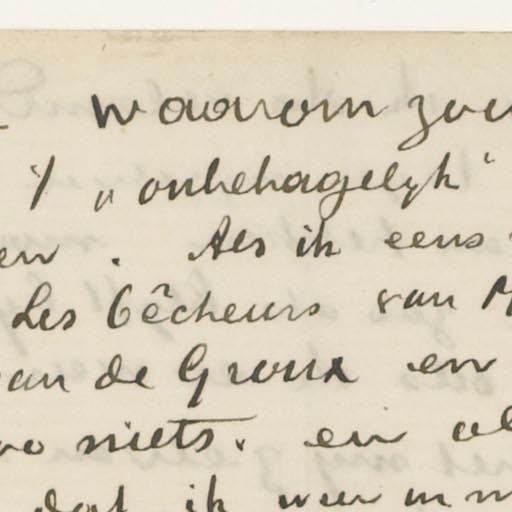 waarom zou
't „onbehagelyk“
en. Als ik eens
Les bêcheurs van M
van de Groux en
zoo niets. en al
dat ik weer